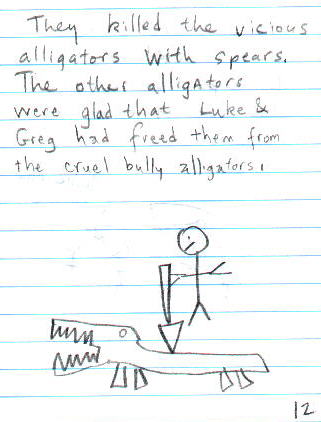 They killed the vicious
alligators with spears.
The other alligators
were glad that Luke &
Greg had freed them from
the cruel bully alligators.
12